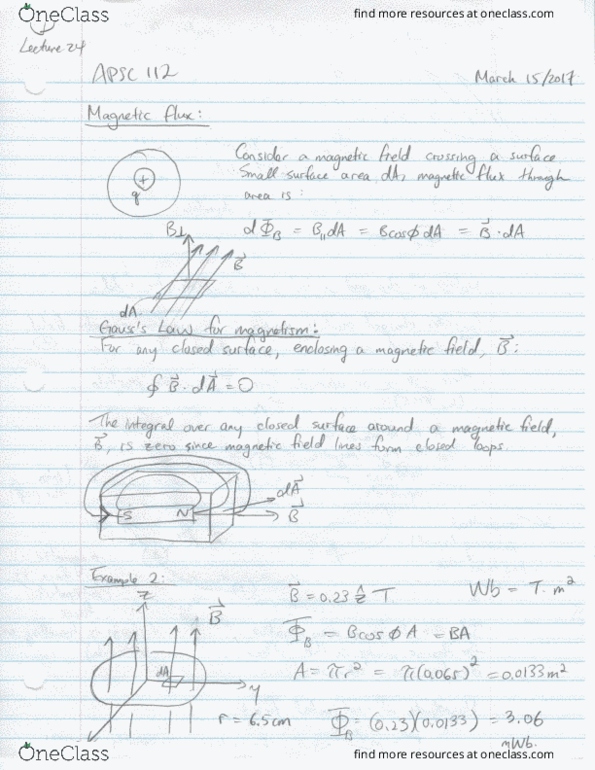 OneClass
find more resources at oneclass.com
Lecture 24
APSC 112
March 15/2017
Magnetic flux:
Consider a magnetic field crossing a surface.
Small surface area dA, magnetic flux through
area is:
+
q
B⊥
B⃗
dΦ_B = B_∥dA = Bcosϕ dA = B⃗·dA
dA
Gauss's Law for magnetism:
For any closed surface, enclosing a magnetic field, B⃗:
∮ B⃗·dA⃗ = 0
The integral over any closed surface around a magnetic field,
B⃗, is zero since magnetic field lines form closed loops.
dA⃗
S N
B⃗
Example 2:
z
B⃗
B⃗ = 0.23 ẑ T
Wb = T·m²
Φ_B = Bcosϕ A = BA
dA
A = πr² = π(0.065)² = 0.0133m²
y
r = 6.5cm
Φ_B = (0.23)(0.0133) = 3.06
mWb.
OneClass
find more resources at oneclass.com